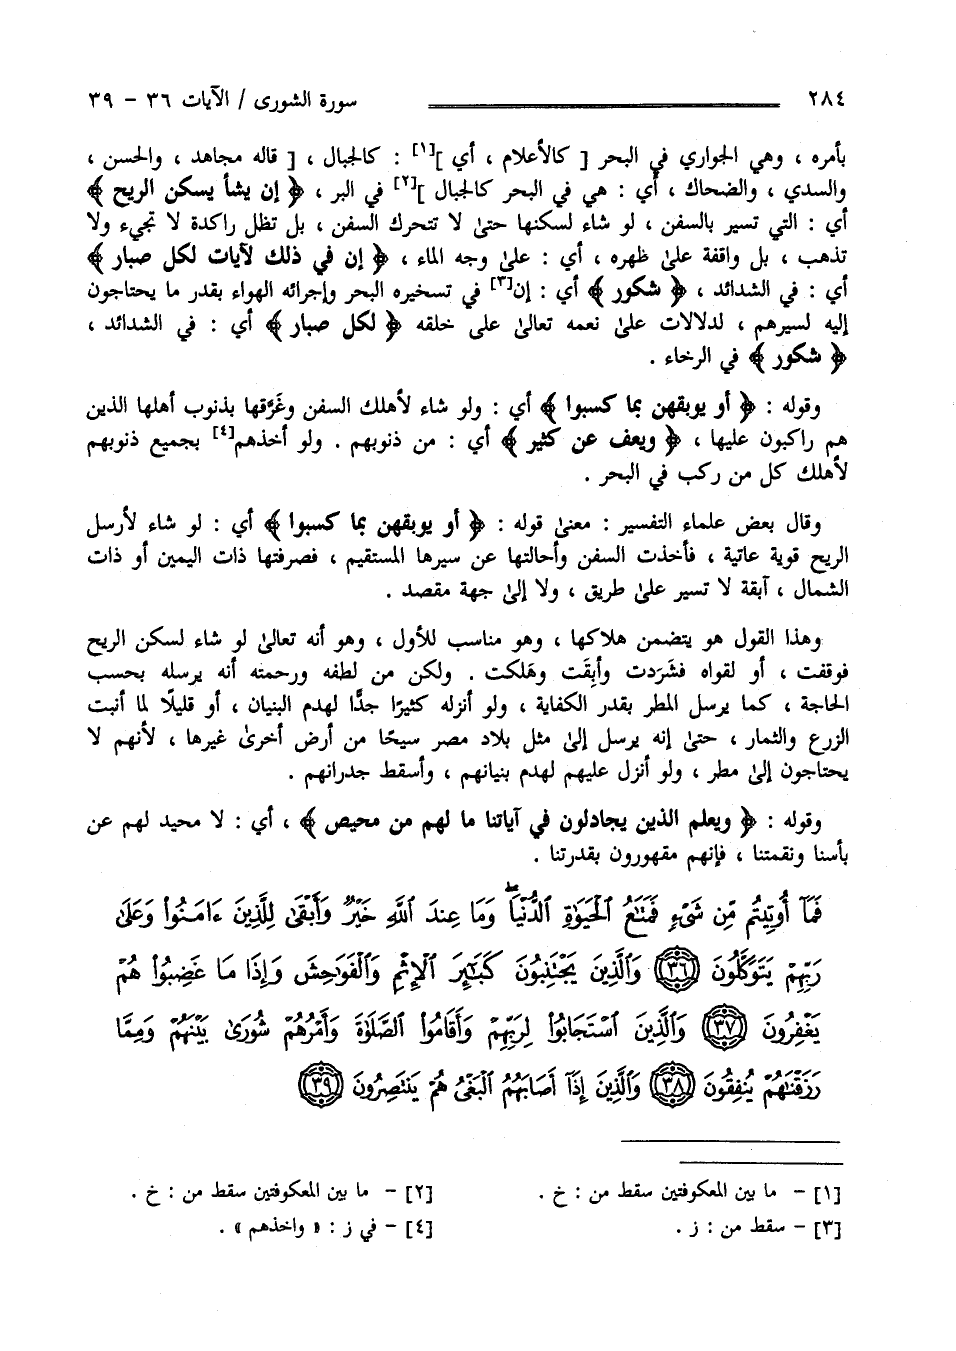 ٢٨٤ سورة الشورى / الآيات ٣٦ - ٣٩
بأمره ، وهي الجواري في البحر [ كالأعلام ، أي ][١] : كالجبال ، [ قاله مجاهد ، والحسن ،
والسدي ، والضحاك ، أي : هي في البحر كالجبال ][٢] في البر ، ﴿ إن يشأ يسكن الريح ﴾
أي : التي تسير بالسفن ، لو شاء لسكنها حتىٰ لا تتحرك السفن ، بل تظل راكدة لا تجيء ولا
تذهب ، بل واقفة علىٰ ظهره ، أي : علىٰ وجه الماء ، ﴿ إن في ذلك لآيات لكل صبار ﴾
أي : في الشدائد ، ﴿ شكور ﴾ أي : إن[٣] في تسخيره البحر وإجرائه الهواء بقدر ما يحتاجون
إليه لسيرهم ، لدلالات علىٰ نعمه تعالىٰ على خلقه ﴿ لكل صبار ﴾ أي : في الشدائد ،
﴿ شكور ﴾ في الرخاء .
وقوله : ﴿ أو يوبقهن بما كسبوا ﴾ أي : ولو شاء لأهلك السفن وغَرَّقها بذنوب أهلها الذين
هم راكبون عليها ، ﴿ ويعف عن كثير ﴾ أي : من ذنوبهم . ولو أخذهم[٤] بجميع ذنوبهم
لأهلك كل من ركب في البحر .
وقال بعض علماء التفسير : معنىٰ قوله : ﴿ أو يوبقهن بما كسبوا ﴾ أي : لو شاء لأرسل
الريح قوية عاتية ، فأخذت السفن وأحالتها عن سيرها المستقيم ، فصرفتها ذات اليمين أو ذات
الشمال ، آبقة لا تسير علىٰ طريق ، ولا إلىٰ جهة مقصد .
وهذا القول هو يتضمن هلاكها ، وهو مناسب للأول ، وهو أنه تعالىٰ لو شاء لسكن الريح
فوقفت ، أو لقواه فشَردت وأبِقَت وهَلكت . ولكن من لطفه ورحمته أنه يرسله بحسب
الحاجة ، كما يرسل المطر بقدر الكفاية ، ولو أنزله كثيرًا جدًّا لهدم البنيان ، أو قليلًا لما أنبت
الزرع والثمار ، حتىٰ إنه يرسل إلىٰ مثل بلاد مصر سيحًا من أرض أخرىٰ غيرها ، لأنهم لا
يحتاجون إلىٰ مطر ، ولو أنزل عليهم لهدم بنيانهم ، وأسقط جدرانهم .
وقوله : ﴿ ويعلم الذين يجادلون في آياتنا ما لهم من محيص ﴾ ، أي : لا محيد لهم عن
بأسنا ونقمتنا ، فإنهم مقهورون بقدرتنا .
فَمَآ أُوتِيتُم مِّن شَىْءٍ فَمَتَٰعُ ٱلْحَيَوٰةِ ٱلدُّنْيَا ۖ وَمَا عِندَ ٱللَّهِ خَيْرٌ وَأَبْقَىٰ لِلَّذِينَ ءَامَنُوا۟ وَعَلَىٰ
رَبِّهِمْ يَتَوَكَّلُونَ ﴿٣٦﴾ وَٱلَّذِينَ يَجْتَنِبُونَ كَبَٰٓئِرَ ٱلْإِثْمِ وَٱلْفَوَٰحِشَ وَإِذَا مَا غَضِبُوا۟ هُمْ
يَغْفِرُونَ ﴿٣٧﴾ وَٱلَّذِينَ ٱسْتَجَابُوا۟ لِرَبِّهِمْ وَأَقَامُوا۟ ٱلصَّلَوٰةَ وَأَمْرُهُمْ شُورَىٰ بَيْنَهُمْ وَمِمَّا
رَزَقْنَٰهُمْ يُنفِقُونَ ﴿٣٨﴾ وَٱلَّذِينَ إِذَآ أَصَابَهُمُ ٱلْبَغْىُ هُمْ يَنتَصِرُونَ ﴿٣٩﴾
[١] - ما بين المعكوفتين سقط من : خ . [٢] - ما بين المعكوفتين سقط من : خ .
[٣] - سقط من : ز . [٤] - في ز : « واخذهم » .